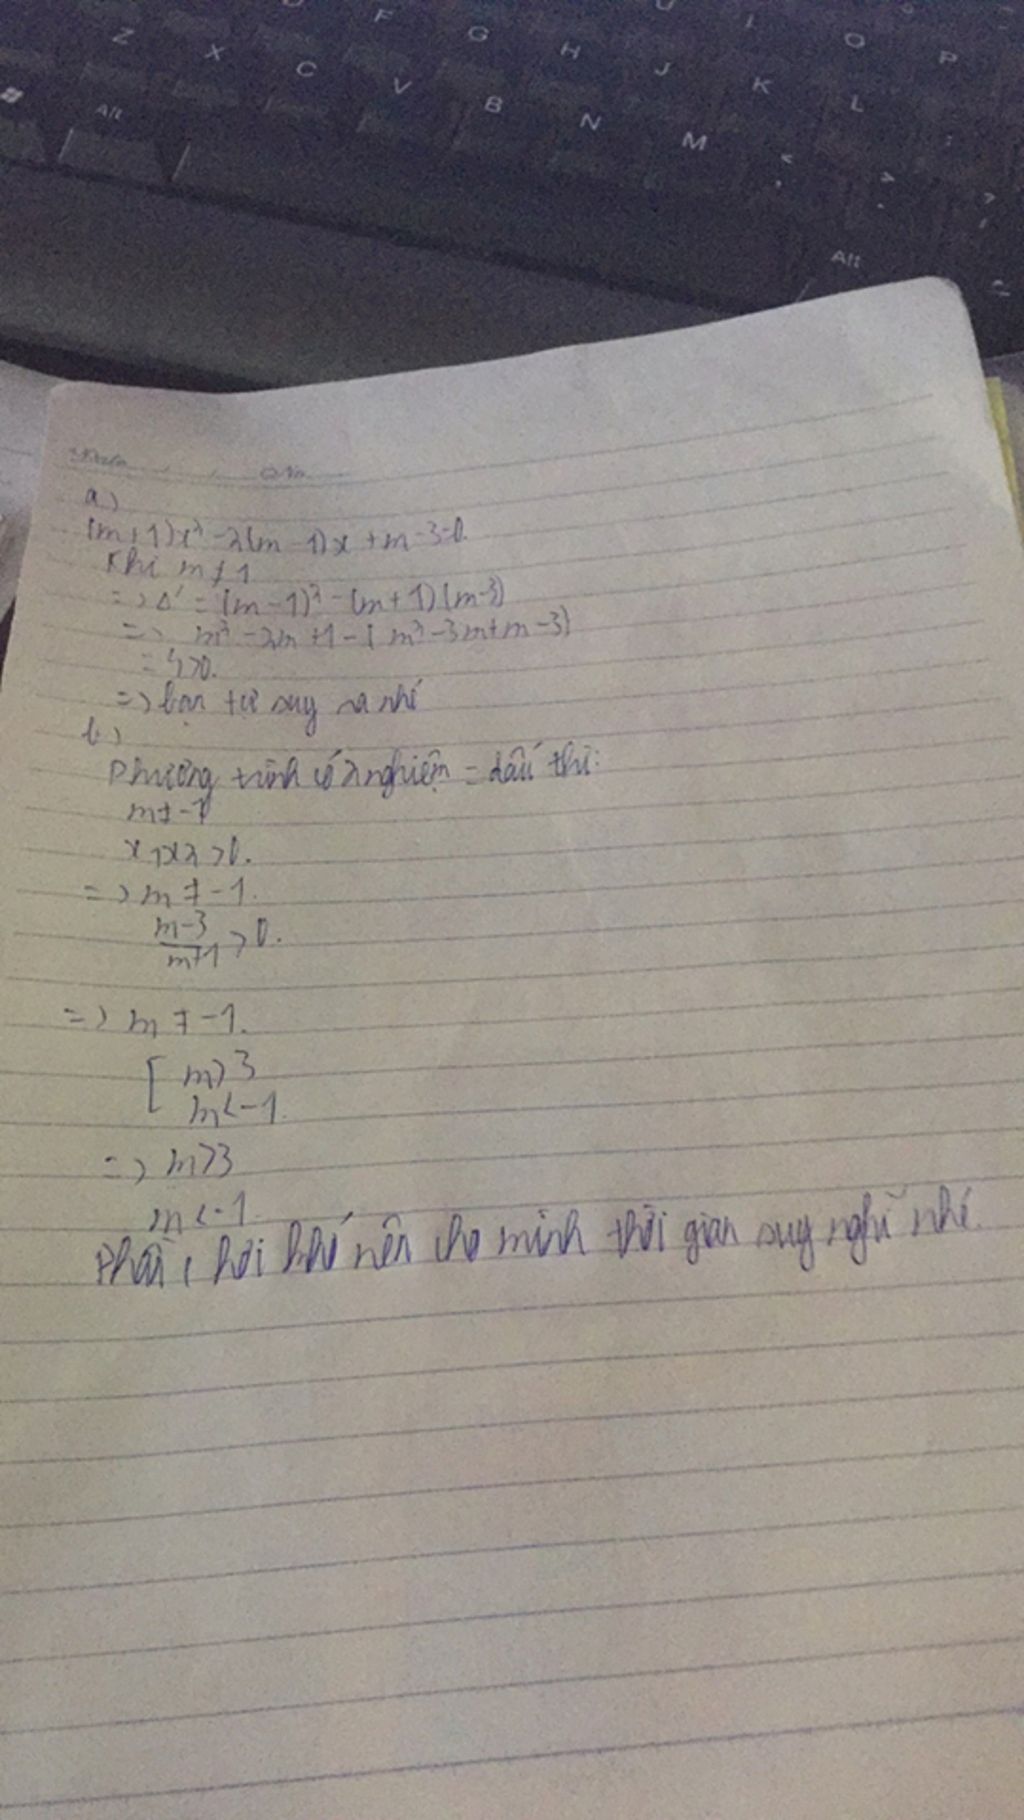 Z X C V B N M
F G H J K L
I O P
Alt
Alt
a)
(m+1)x² - 2(m-1)x + m-3=0.
Khi m≠1
=> Δ' = (m-1)² - (m+1)(m-3)
=> m² - 2m + 1 - (m² - 3m + m - 3)
= 4>0.
=> bạn tự suy ra nhé
b)
Phương trình có 2 nghiệm = dấu thì:
m≠-1
x1x2 >0.
=> m ≠ -1.
m-3
m+1 >0.
=> m ≠ -1.
[ m>3
m<-1.
=> m>3
m<-1.
Phần c hơi khó nên cho mình thời gian suy nghĩ nhé.